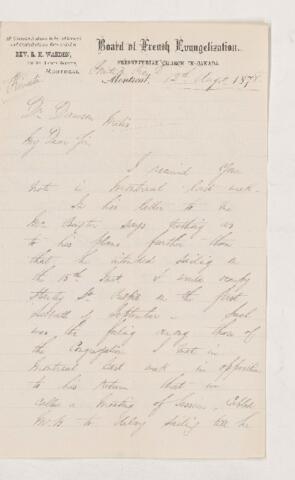 All Communications to be addressed
and Contributions forwarded to
REV. R. H. WARDEN,
MONTREAL.
Board of French Evangelization.
PRESBYTERIAN CHURCH IN CANADA
Montreal, 12th Augt 187
Private
Dr Dawson
My Dear Sir,
I received your
note in Montreal last week.
In his letter to me
Mr Baxter says nothing as
to his plans further than
that he intended sailing on
the 15th Inst &
Stanley St on the first
Sabbath of September. Such
was the feeling among those of
the Congregation I met in
Montreal last week in opposition
to his return that we
called a meeting of Session, cabled
Mr B to delay sailing till he